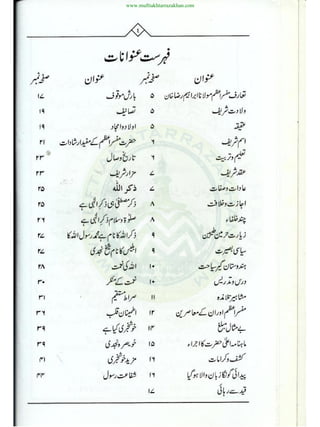 www.muftiakhtarrazakhan.com
۴
فہرست عنوانات
عنوان صفحہ نمبر عنوان صفحہ نمبر
تعارف مفسر اعظم مولانا ابراہیم رضا خان ۵ بارش موقوف ۱۷
ولادت شریف ۵ تصانیف ۱۹
عقیقہ ۵ اولاد و امجاد ۱۹
اسم شریف ۶ حضرت مفسر اعظم کے مفید ارشادات ۲۱
تعلیم و تربیت ۶ تاریخ وصال ۲۳
عقد شریف ۷ مزار شریف ۲۴
عادات و صفات ۷ ذکر اللہ ۲۵
اجازت و خلافت ۸ ذکر مصطفی ہی ذکر الٰہی ہے ۲۵
چند خلفاء ۸ صلوٰۃ و سلام ذکر الٰہی ہے ۲۶
زیارت حرمین شریفین ۹ ذکر اللہ کا نام ہے محمد رسول اللہ کا ۲۷
سیاسی بصیرت ۹ ابلیس کا نام شیخ نجدی ۲۷
ہندوستان گیر سیاحت ۱۰ اللہ کی نعمت ۲۸
درس و تدریس ۱۰ نعمت کے منکر ۳۰
مشاہیر تلامذہ ۱۱ صراط مستقیم ۳۱
مفسر اعظم اور ان کے معاصرین ۱۲ اطمینان قلب ۳۶
بے مثال مبلغ ۱۳ خوشخبری کیا ہے ۳۹
ماہنامہ اعلیٰ حضرت کا اجراء ۱۵ خویصرہ نجدی ۳۹
کشف و کرامات ۱۶ مزید خوشخبری ۴۱
پیدائشی گونگا زبان والا ہو گیا ۱۶ شفاعت رسول ۴۳
قید سے رہائی ۱۷